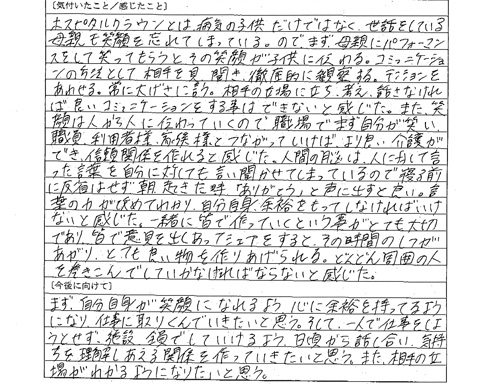 [気付いたこと/感じたこと]
ホスピタルクラウンとは、病気の子供だけではなく、世話をしている
母親も笑顔を忘れてしまっている。のでまず母親にパフォーマン
スをして笑ってもらうと、その笑顔が子供に伝わる。コミュニケーショ
ンの方法として相手を見、聞き、徹底的に観察する。テンションを
あわせる。常に大げさに言う。相手の立場に立ち、考え、話さなけれ
ば良いコミュニケーションをする事はできないと感じた。また、笑
顔は人から人に伝わっていくので職場でまず自分が笑い
職員、利用者様、家族様とつながっていけば、より良い介護が
でき、信頼関係を作れると感じた。人間の脳は、人に対して言っ
た言葉を自分に対しても言い聞かせてしまっているので寝る前
に反省はせず朝起きた時「ありがとう」と声に出すと良い。言
葉の力が改めてわかり、自分自身、余裕をもってしなければいけ
ないと感じた。一緒に皆で作っていくという事がとても大切
であり、皆で意見を出しあってシェアをすると、その時間の
あがり、とても良い物を作りあげられる。どんどん周囲の人
を巻きこんでしていかなければならないと感じた。
[今後に向けて]
まず、自分自身が笑顔になれるよう心に余裕を持てるよう
になり、仕事に取りくんでいきたいと思う。そして、一人で仕事をしよ
うとせず、施設全員でしていけるよう、日頃から話し合い、気持
ちを理解しあえる関係を作っていきたいと思う。また、相手の立
場がわかるようになりたいと思う。